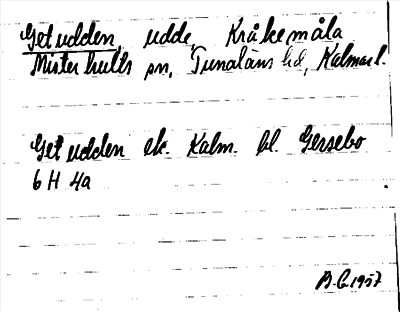 Getudden, udde, Kråkemåla
Misterhults sn, Tunaläns hd, Kalmar l.
Getudden ek. Kalm. bl. Gersebo
6 H 4a
B-G 1957